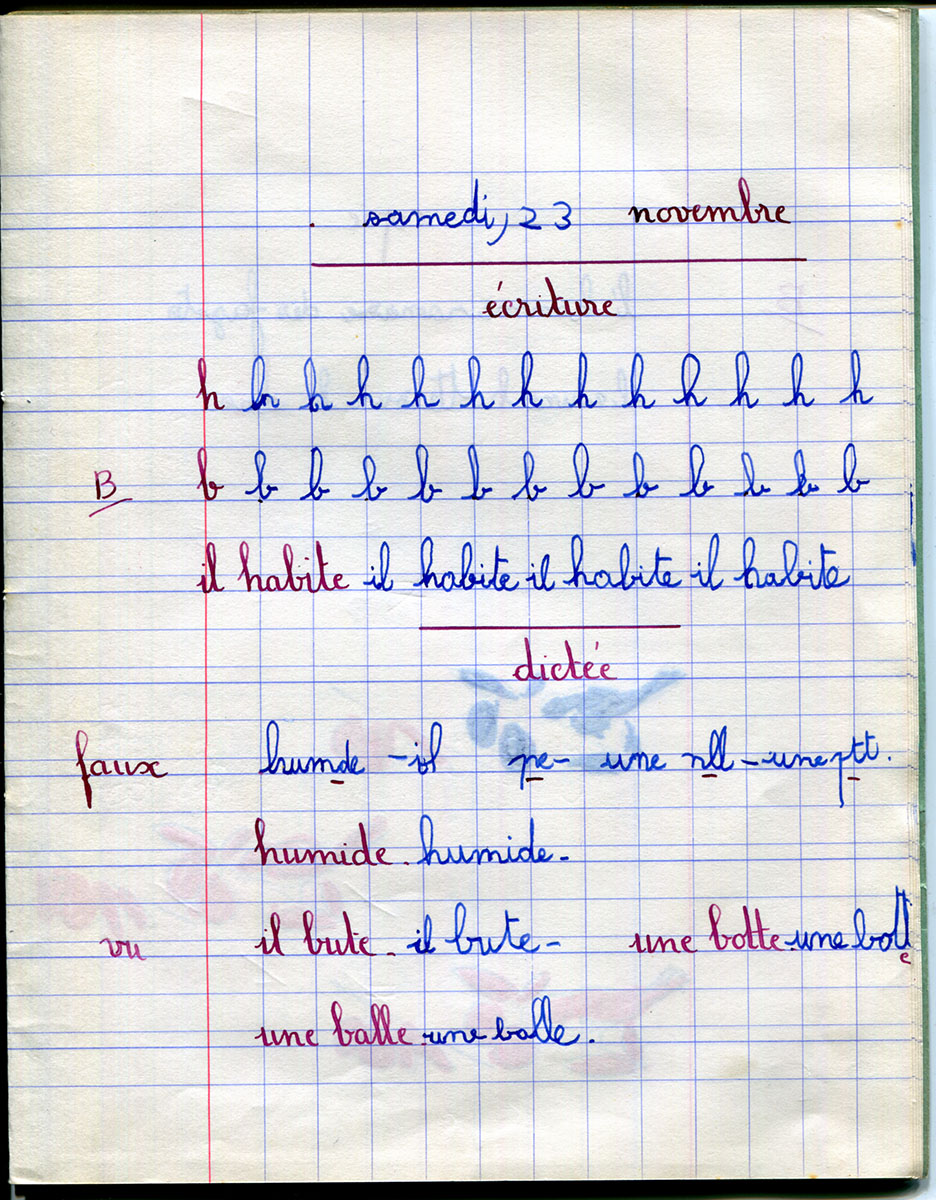 . samedi, 23 novembre
écriture
h h h h h h h h h h h h h
B b b b b b b b b b b b b b
il habite il habite il habite il habite
dictée
faux humde - il pe - une nll - une ptt.
humide. humide -
vu il bute. il bute - une botte. une bott e
une balle. une balle.